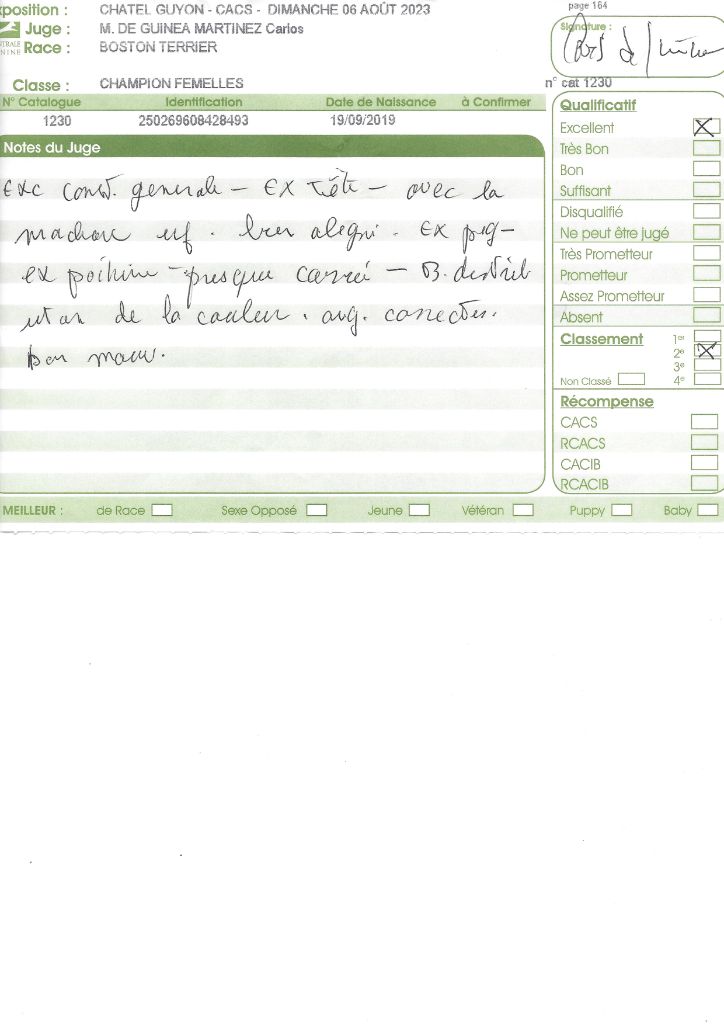 xposition : CHATEL GUYON - CACS - DIMANCHE 06 AOÛT 2023
page 164
Juge : M. DE GUINEA MARTINEZ Carlos
Signature :
NTRALE
NINE
Race : BOSTON TERRIER
Classe : CHAMPION FEMELLES
n° cat 1230
N° Catalogue Identification Date de Naissance à Confirmer
1230 250269608428493 19/09/2019
Notes du Juge
Exc const. generale - EX tête - avec la
machoire inf. bien Ex
ex poitrine - presque carrée - B. distrib
ution de la couleur. ang. correctes.
bon mouv.
Qualificatif
Excellent X
Très Bon
Bon
Suffisant
Disqualifié
Ne peut être jugé
Très Prometteur
Prometteur
Assez Prometteur
Absent
Classement 1er
2e X
3e
Non Classé 4e
Récompense
CACS
RCACS
CACIB
RCACIB
MEILLEUR : de Race Sexe Opposé Jeune Vétéran Puppy Baby